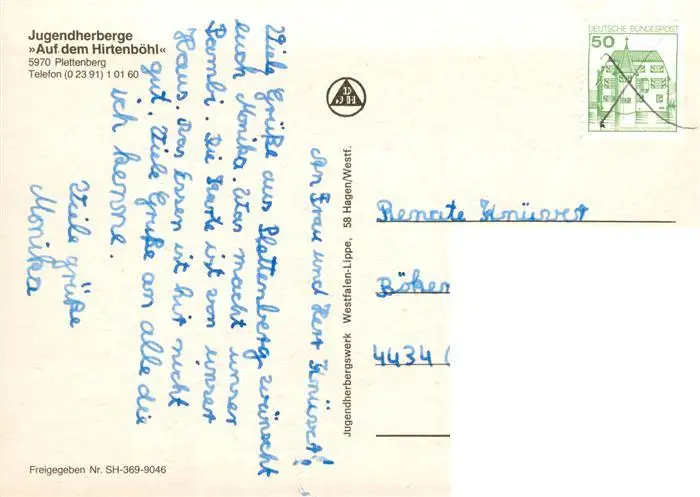 Jugendherberge
»Auf dem Hirtenböhl«
5970 Plettenberg
Telefon (0 23 91) 1 01 60
An Frau und Herr Knüwer!
Viele Grüße aus Plettenberg wünscht
euch Monika. Was macht unser
Bambi. Die Karte ist von unser
Haus. Das Essen ist hir nicht
gut. Viele Gruße an alle die
ich kenne.
Viele grüße
Monika
Freigegeben Nr. SH-369-9046
Jugendherbergswerk Westfalen-Lippe, 58 Hagen/Westf.
DEUTSCHE BUNDESPOST
50
Renate Knüwer
4434